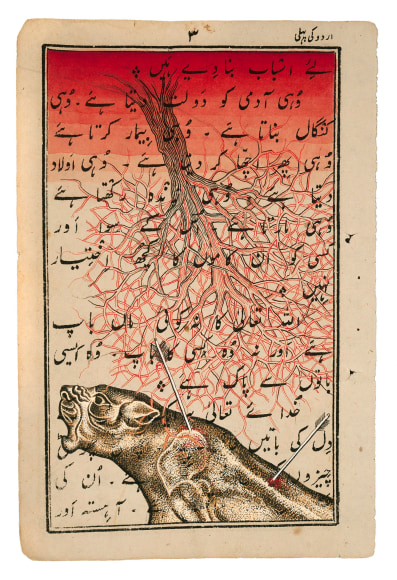 اردو کی پہلی
۳
لئے اسباب بنا دیے ہیں ۔
وُہی آدمی کو دَولت دیتا ہے ۔ وُہی
کنگال بناتا ہے ۔ وُہی بیمار کرتا ہے
وُہی پھر اچّھا کر دیتا ہے ۔ وُہی اَولاد
دیتا ہے ۔ وُہی زندہ رکھتا ہے
وُہی مارتا ہے ۔ کے سوا اَور
کسی کو اِن کاموں کا کچھ اِختیار
نہیں ۔
اللہ تعالیٰ کا نہ کوئی ماں باپ
ہے اَور نہ وُہ کِسی کا باپ ۔ وُہ ایسی
باتوں سے پاک ہے ۔
خُدائے تعالیٰ
دِل کی باتیں
چیزوں ۔ اُن کی
۔ آہستہ اَور